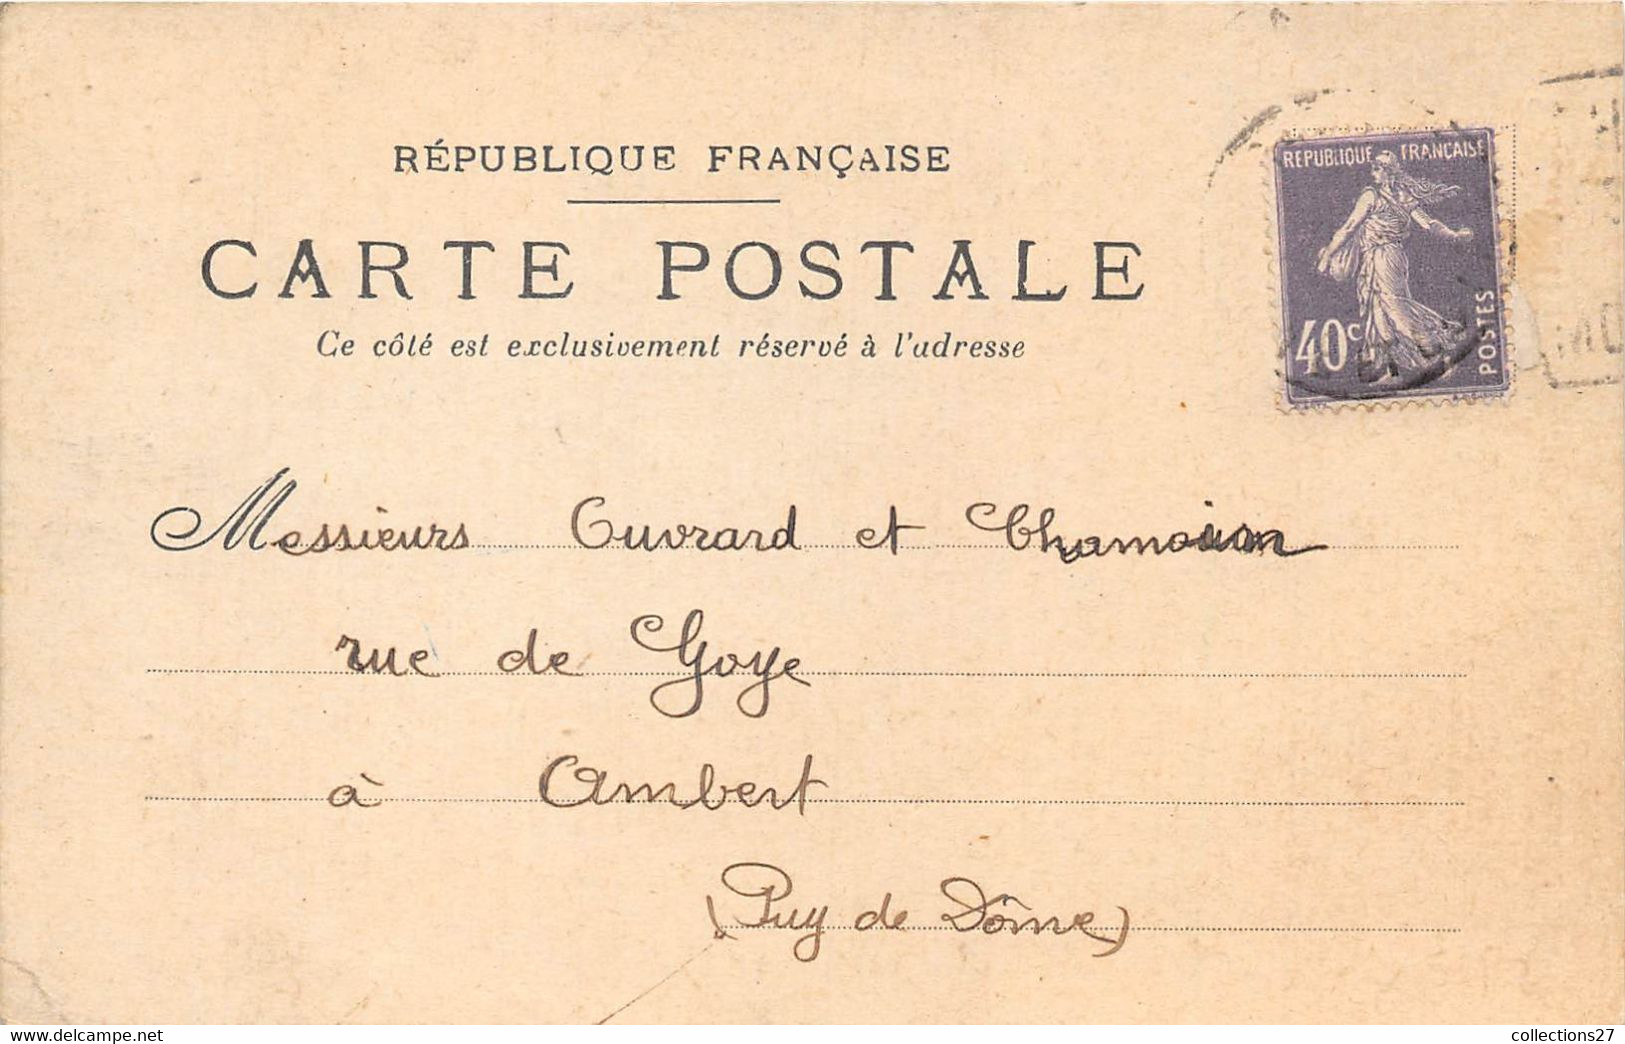 RÉPUBLIQUE FRANÇAISE
CARTE POSTALE
Ce côté est exclusivement réservé à l'adresse
REPUBLIQUE FRANÇAISE
40c
POSTES
Messieurs Ouvrard et
rue de Goye
à Ambert
(Puy de Dôme)
www.delcampe.net
collections27